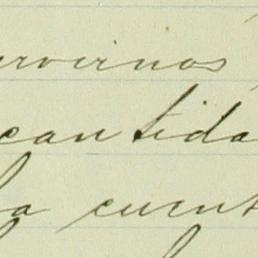 servirnos
cantida
la cuent